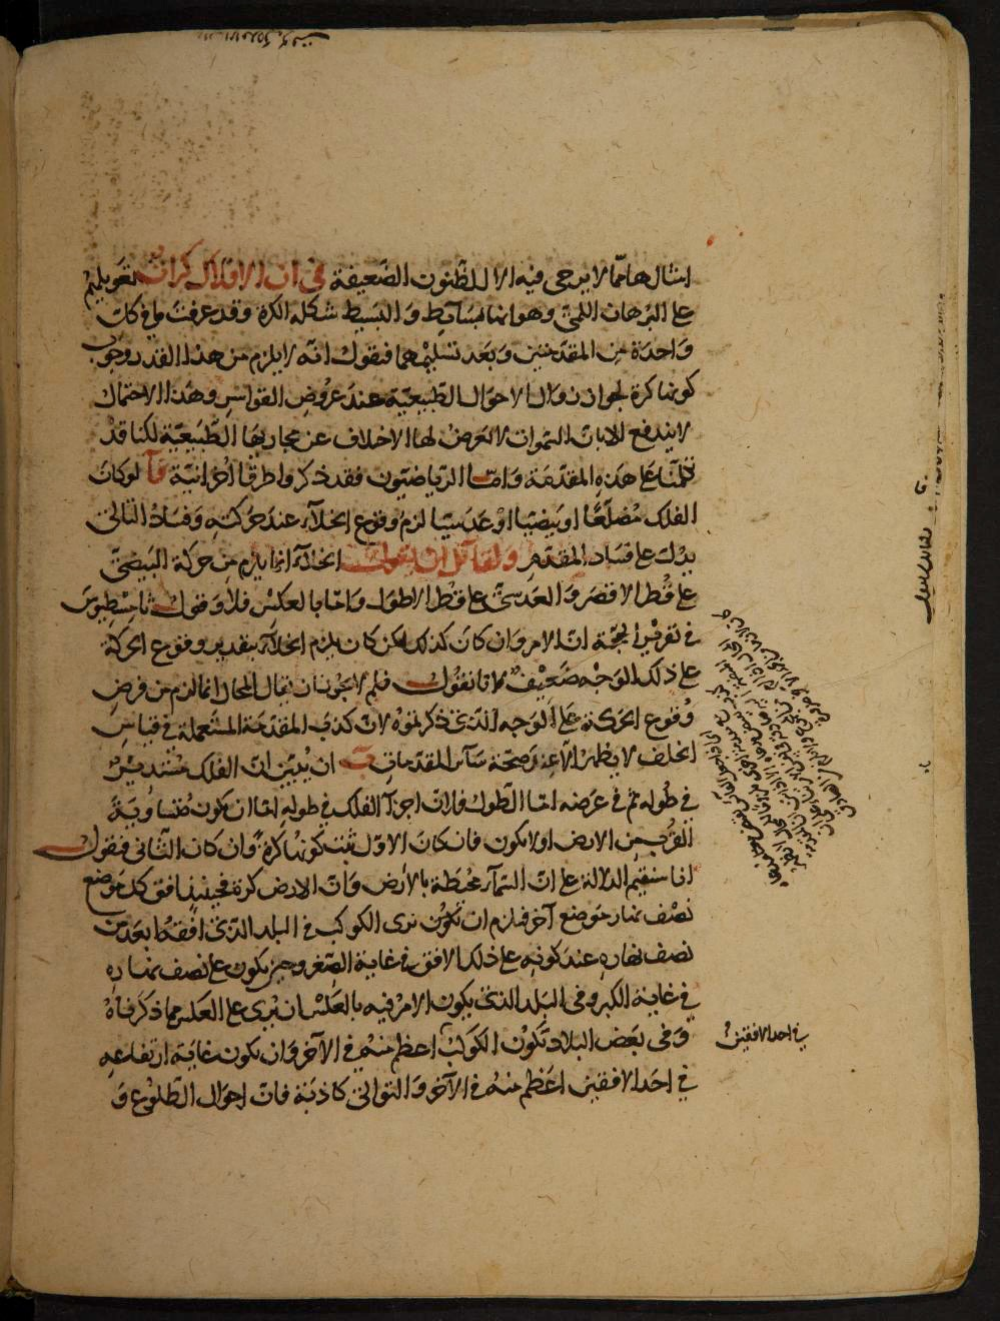 امثالها مما لا يرجى فيه الا للظنون الضعيفة في ان الافلاك كرات تعويلهم
على البرهان اللمي وهو انها بسايط والبسيط شكله الكرة وقد عرفت ما في كل
واحدة من المقدمتين وبعد تسليمهما فنقول انه لا يلزم من هذا القدر وجوب
كونها كرة لجواز زوال الاحوال الطبيعية عند عروض القواسر وهذا الاحتمال
لا يندفع الا بان السموات لا تعرض لها الاختلاف عن مجاريها الطبيعية لكنا قد
تكلمنا على هذه المقدمة واما الرياضيون فقد ذكروا طرقا اقناعية آ لو كان
الفلك مضلعا او بيضيا او عدسيا لزم وقوع الخلاء عند حركته وفساد التالي
يدل على فساد المقدم ولقائل ان يقول الخلاء انما يلزم من حركة البيضي
على قطر الاقصر والعدسي على قطر الاطول واما بالعكس فلا وقول ثامسطيوس
في تقرير الحجة ان الامر وان كان كذلك لكن كان يلزم الخلاء بتقدير وقوع الحركة
على ذلك الوجه ضعيف لانا نقول فلم لا يجوز ان يقال المحال انما لزم من فرض
وقوع الحركة على الوجه الذي ذكرتموه لان كذب المقدمة المستعملة في قياس
الخلف لا يظهر الا عند صحة سائر المقدمات ب ان نبين ان الفلك مستدير
في طوله ثم في عرضه اما الطول فلان اجزاء الفلك في طوله اما ان تكون متساوية
القرب من الارض او لا تكون فان كان الاول ثبت كونها كرة وان كان الثاني فنقول
انا سنقيم الدلالة على ان السماء محيطة بالارض وان الارض كرة فحينئذ افق كل موضع
نصف نهار موضع آخر فيلزم ان نكون نرى الكوكب في البلد الذي افقه ابعد من
نصف نهاره عند كونه على ذلك الافق في غاية الصغر وحين يكون على نصف نهاره
في غاية الكبر وفي البلد الذي يكون الامر فيه بالعكس ان يرى على العكس مما ذكرناه
وفي بعض البلاد تكون الكواكب اعظم منه في الآخر وان تكون غاية ارتفاعه
في احد الافقين
في احد الافقين اعظم منه في الآخر والتوالي كاذبة فان احوال الطلوع و